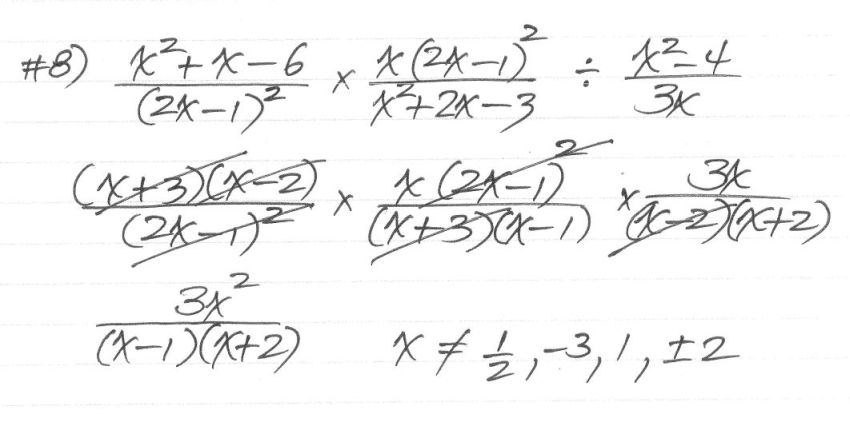 #8) (x²+x-6)/(2x-1)² × x(2x-1)²/(x²+2x-3) ÷ (x²-4)/3x
(x+3)(x-2)/(2x-1)² × x(2x-1)²/(x+3)(x-1) × 3x/(x-2)(x+2)
3x²/(x-1)(x+2) x ≠ 1/2, -3, 1, ±2